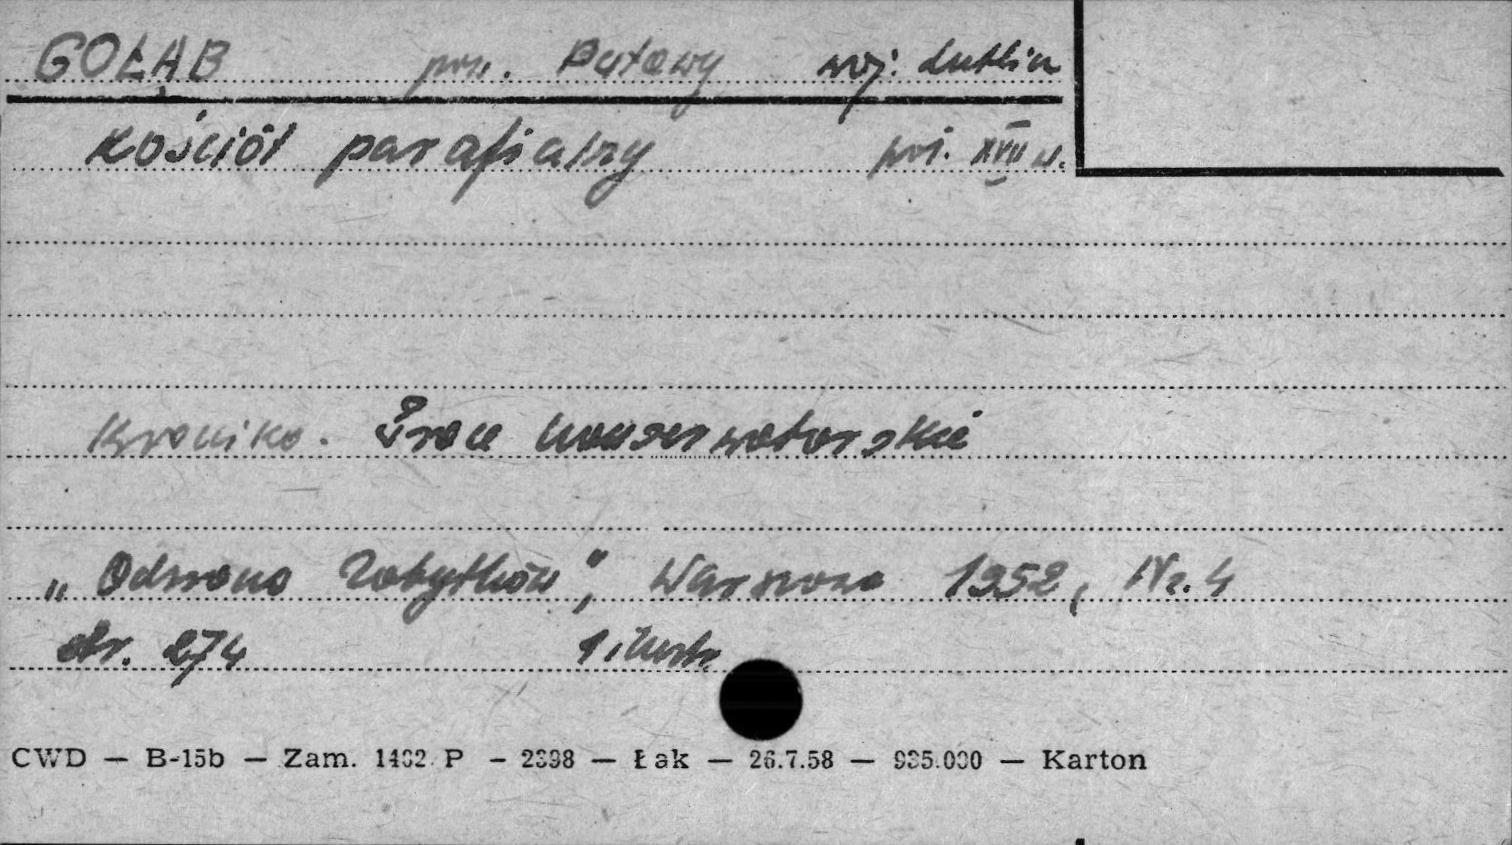 GOŁĄB pow. Puławy woj. Lublin
Kościół parafialny poł. XVII w.
Kronika. Prace konserwatorskie
„Ochrona Zabytków”, Warszawa 1952, Nr. 4
str. 274 1 ilustr.
CWD — B-15b — Zam. 1432 P - 2398 — Łak — 26.7.58 — 935.000 — Karton